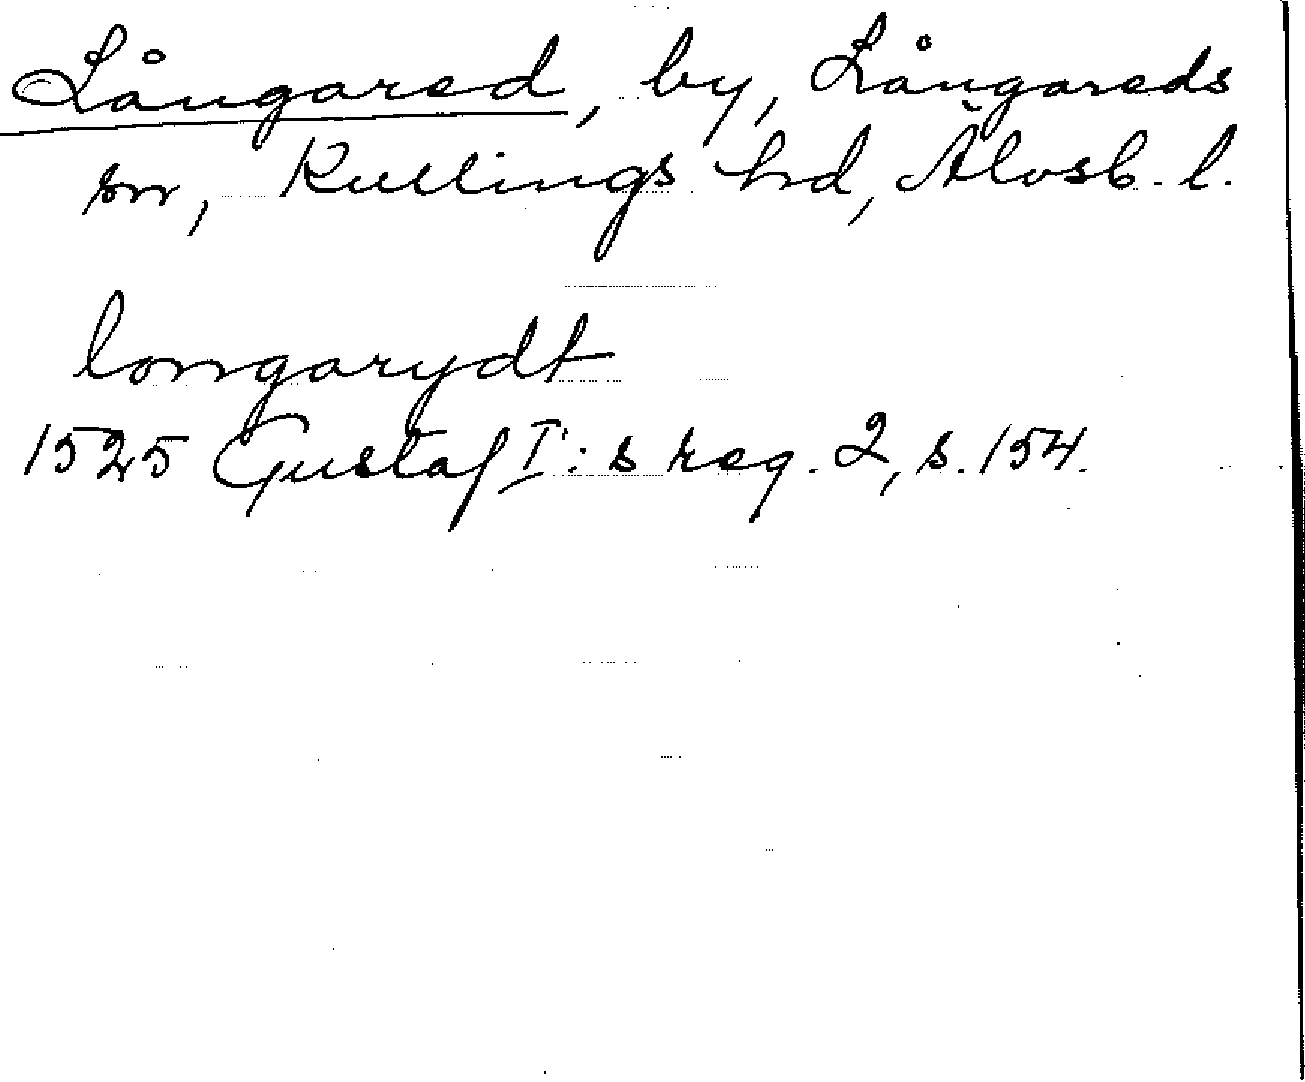 Långared, by, Långareds
sn, Kullings hd, Älvsb. l.
longarydt
1525 Gustaf I:s reg. 2, s. 154.